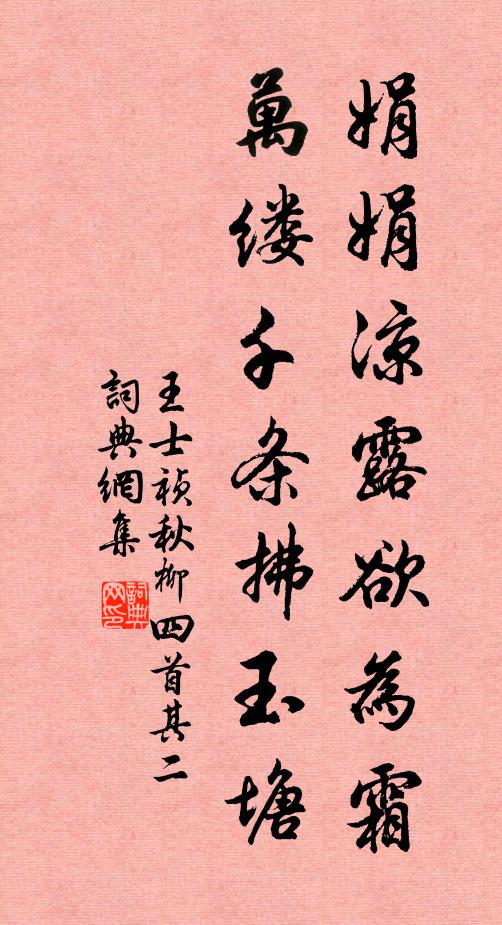 娟娟涼露欲為霜
萬缕千条拂玉塘
王士禎秋柳四首其二
詞典網集
詞典
网印